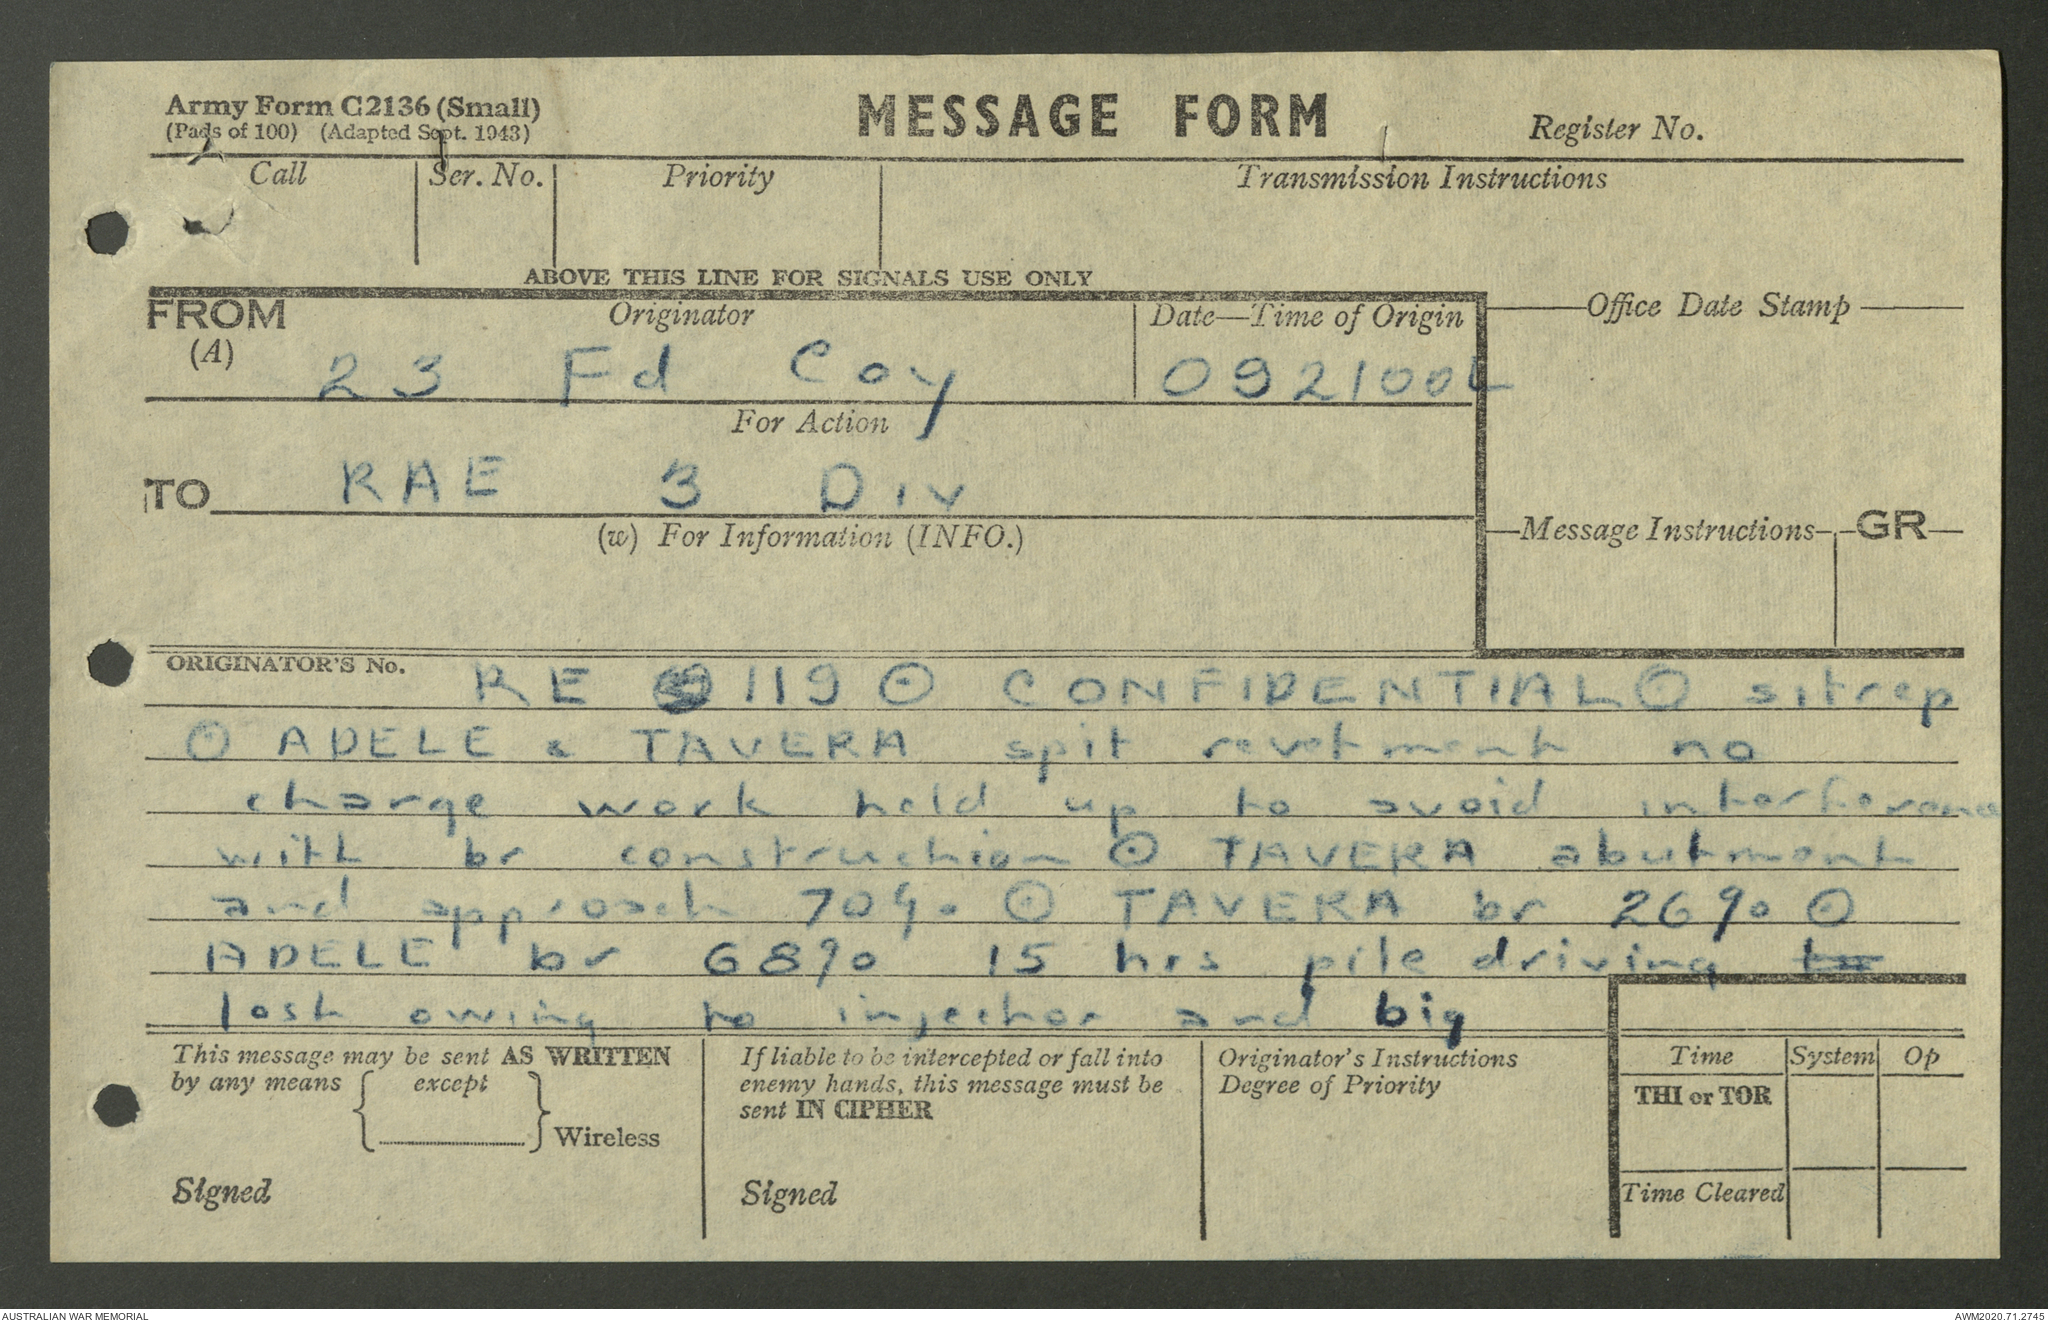 Army Form C2136 (Small)
(Pads of 100) (Adapted Sept. 1943)
MESSAGE FORM
Register No.
Call
Ser. No.
Priority
Transmission Instructions
ABOVE THIS LINE FOR SIGNALS USE ONLY
FROM
(A)
Originator
23 Fd Coy
Date—Time of Origin
092100L
Office Date Stamp
For Action
TO
RAE 3 Div
(w) For Information (INFO.)
Message Instructions
GR
ORIGINATOR'S No.
RE 119 ⊙ CONFIDENTIAL ⊙ sitrep
⊙ ADELE & TAVERA spit revetment no
charge work held up to avoid interference
with br construction ⊙ TAVERA abutment
and approach 70% ⊙ TAVERA br 26% ⊙
ADELE br 68% 15 hrs pile driving to
lost owing to injector and big
This message may be sent AS WRITTEN
by any means { except } Wireless
Signed
If liable to be intercepted or fall into
enemy hands, this message must be
sent IN CIPHER
Signed
Originator's Instructions
Degree of Priority
Time
System
Op
THI or TOR
Time Cleared
AUSTRALIAN WAR MEMORIAL
AWM2020.71.2745